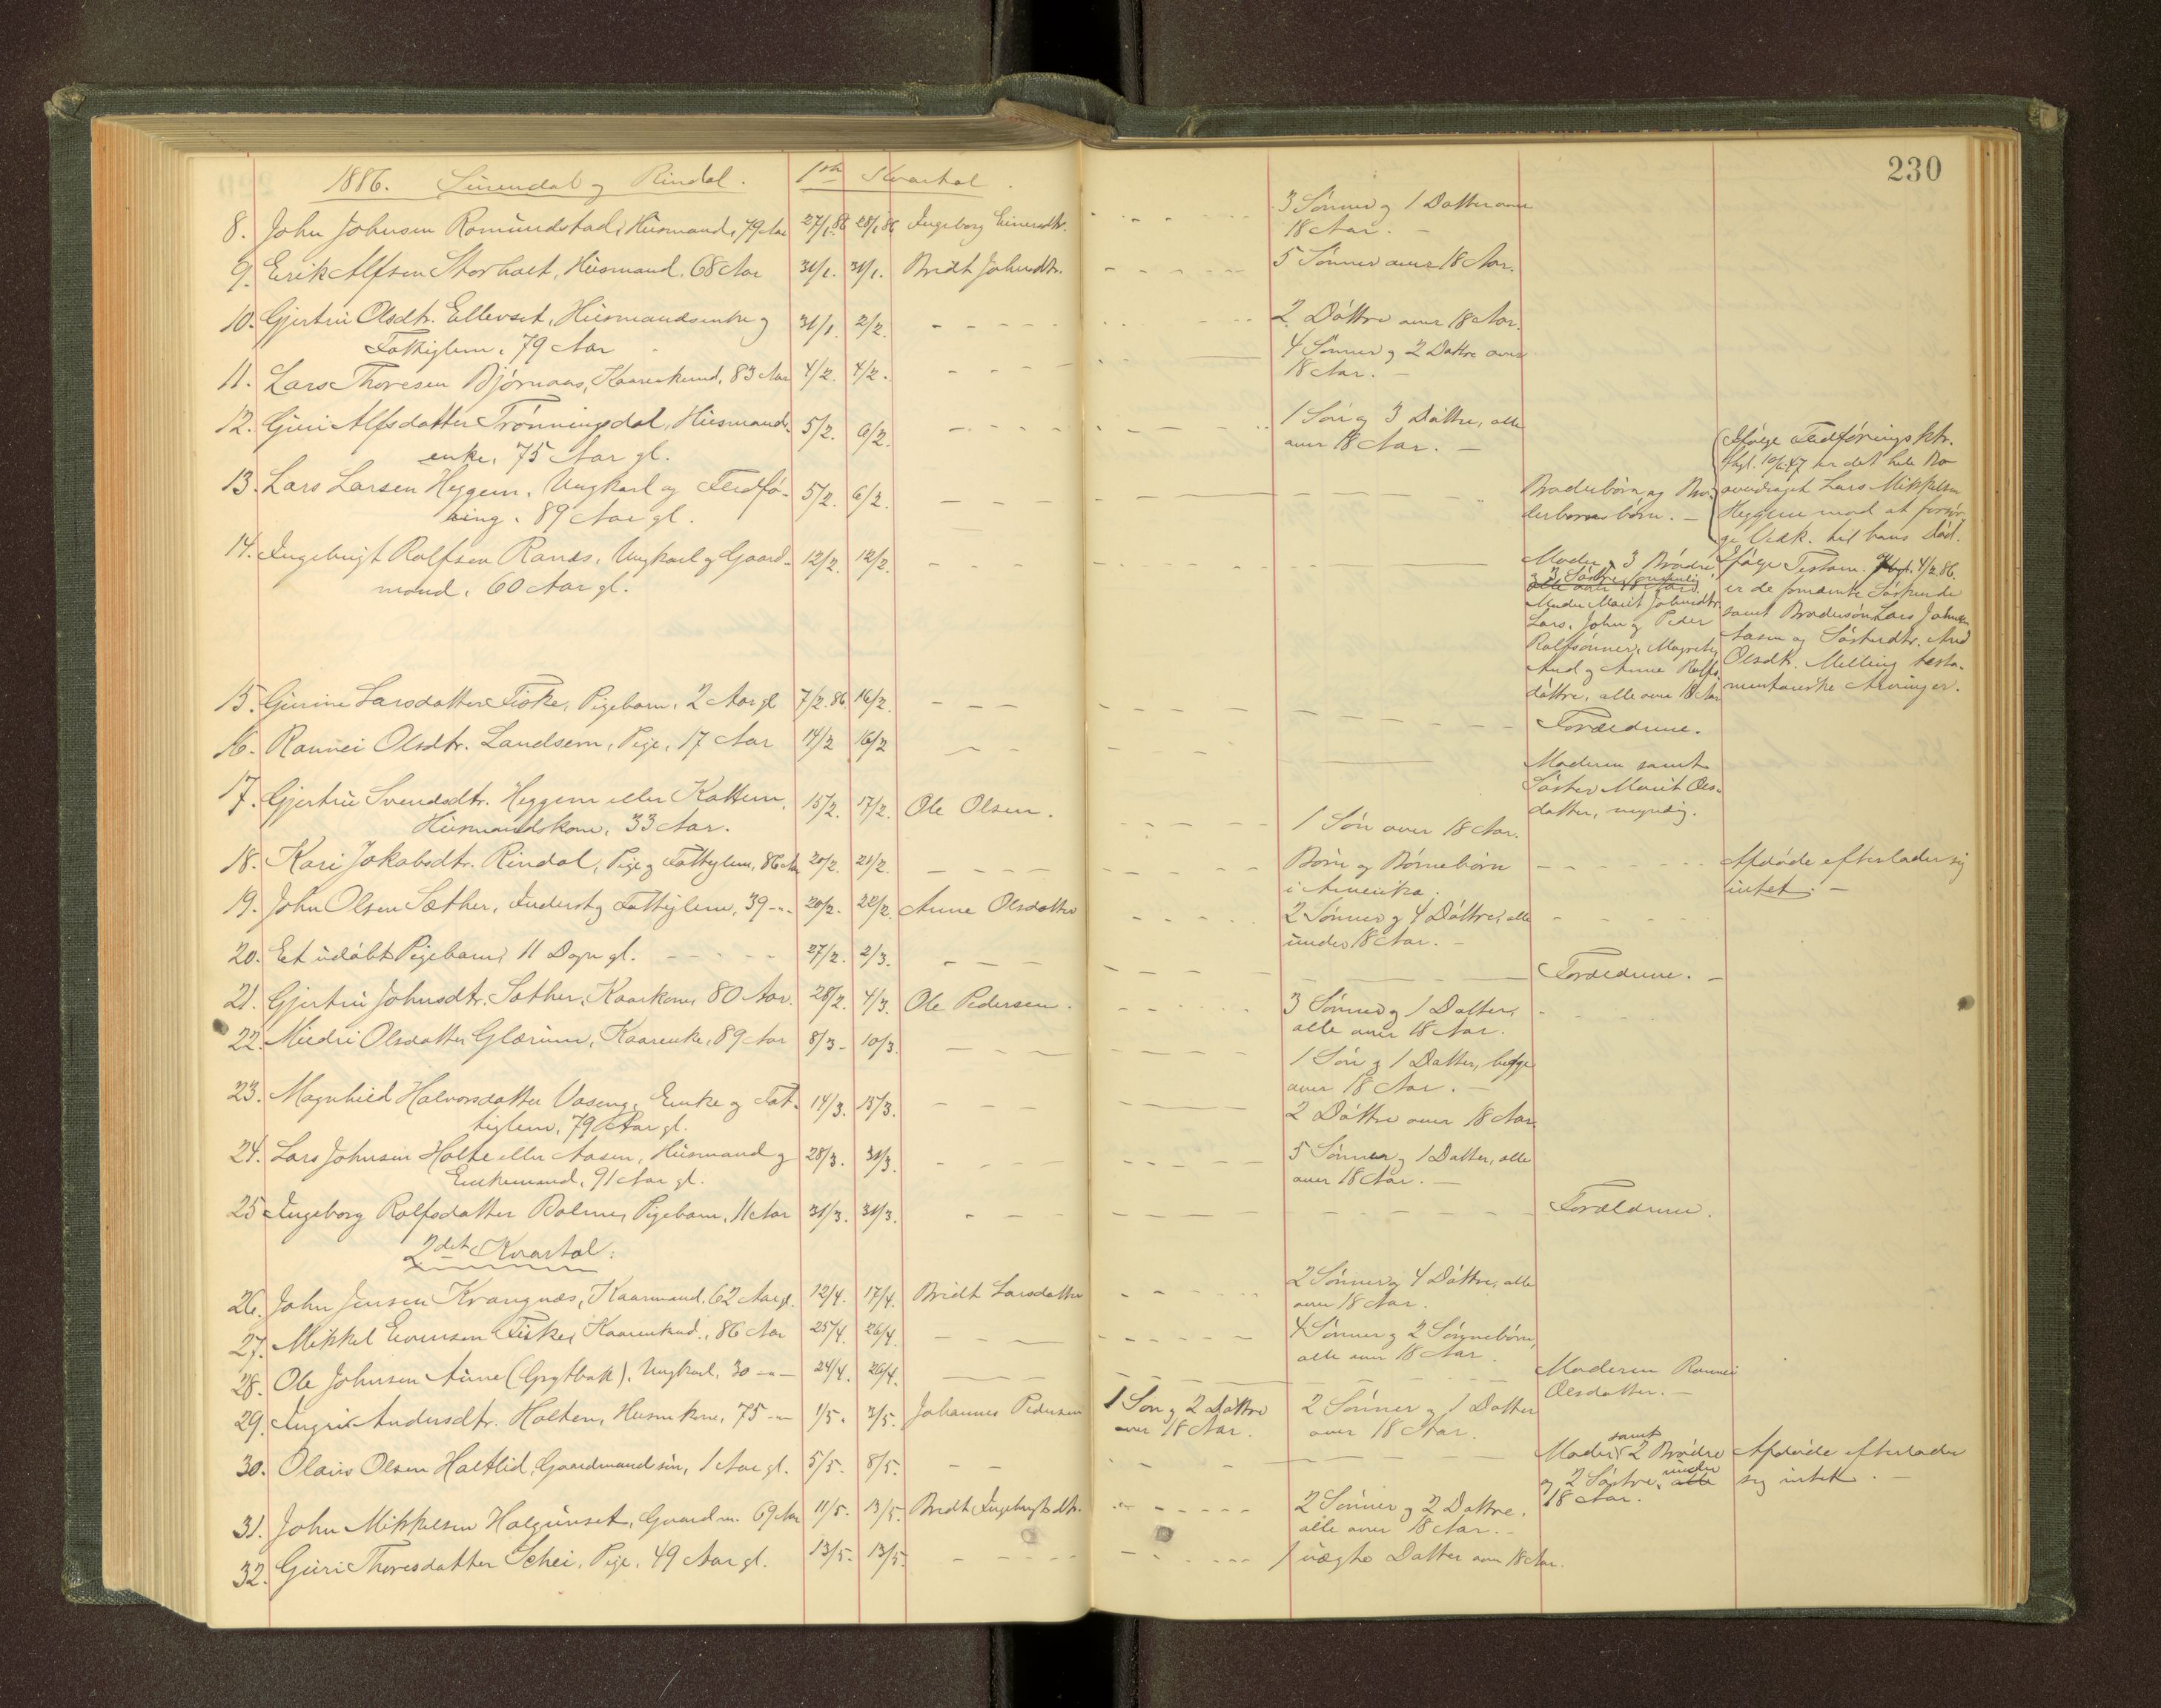 230
1886. Surendal og Rindal. 1ste Kvartal.
8. John Johnsen Romundstad, Husmand, 79 Aar 27/1.86 28/1.86 Ingeborg Einersdtr. - - - - 3 Sønner og 1 Datter over
18 Aar. -
9. Erik Alfsen Storholt, Husmand, 68 Aar 31/1. 31/1. Bridt Johnsdtr. - - - - 5 Sønner over 18 Aar.
10. Gjertru Olsdtr. Ellevset, Husmandsenke og 31/1. 2/2. - - - - 2 Døttre over 18 Aar.
Fattiglem, 79 Aar
11. Lars Thoresen Bjørnaas, Kaarenkmd, 83 Aar 4/2. 4/2. - - - 4 Sønner og 2 Døttre over
18 Aar. -
12. Guri Alfsdatter Trønningsdal, Husmands- 5/2. 6/2. - - - - 1 Søn og 3 Døttre, alle
enke, 75 Aar gl. over 18 Aar. -
13. Lars Larsen Heggem, Ungkarl og Fledfø- 5/2. 6/2. - - - - Broderbørn og Bro-
ring, 89 Aar gl. derbørns børn. -
Ifølge Fledføringsktr.
thgl. 10/6.47 er det hele Bo
overdraget Lars Mikkelsen
Heggem mod at forsør-
ge Vedk. til hans Død.
14. Ingebrigt Rolfsen Ranæs, Ungkarl og Gaard- 12/2. 12/2. - - - -
mand, 60 Aar gl.
Moder, 3 Brødre
og 3 Søstre,
alle over 18 Aar.
Moder Marit Johnsdtr.
Lars, John og Peder
Rolfsønner, Magrete,
Aud og Anne Rolfs-
døttre, alle over 18 Aar
Ifølge Testam. 4/2.86.
er de fornævnte Søskende
samt Brodersøn Lars Johnsen
Aasen og Søsterdtr. Aud
Olsdtr. Melling testa-
mentariske Arvinger.
15. Gurine Larsdatter Fiske, Pigebarn, 2 Aar gl 7/2.86 16/2. - - - - Forældrene.
16. Rannei Olsdtr. Landsem, Pige, 17 Aar 14/2 16/2 - - Moderen samt
Søster Marit Ols-
datter, myndig.
17. Gjertru Svendsdtr. Heggem eller Kattem, 15/2. 17/2. Ole Olsen. - - - - 1 Søn over 18 Aar.
Husmandskone, 33 Aar.
18. Kari Jakobsdtr. Rindal, Pige og Fattiglem, 86 Aar 20/2. 21/2. - - - - Børn og Børnebørn - - - - Afdøde efterlader sig
i Amerika. intet. -
19. John Olsen Sæther, Inderst og Fattiglem, 39 -"- 20/2. 22/2. Anne Olsdatter - - - - 2 Sønner og 4 Døttre, alle
under 18 Aar. -
20. Et udøbt Pigebarn, 11 Dage gl. - - - - 27/2. 2/3. - - - - Forældrene. -
21. Gjertru Johnsdtr. Sæther, Kaarkone, 80 Aar. 28/2. 4/3. Ole Pedersen. - - - - 3 Sønner og 1 Datter,
alle over 18 Aar.
22. Mildri Olsdatter Glærum, Kaarenke, 89 Aar 8/3. 10/3. - - - - 1 Søn og 1 Datter, begge
over 18 Aar. -
23. Magnhild Halvorsdatter Vaseng, Enke og Fat- 14/3. 15/3. - - - 2 Døttre over 18 Aar.
tiglem, 79 Aar gl.
24. Lars Johnsen Holte eller Aasen, Husmand og 28/3. 31/3. - - - - 5 Sønner og 1 Datter, alle
Enkemand, 91 Aar gl. over 18 Aar. -
25 Ingeborg Rolfsdatter Bolme, Pigebarn, 11 Aar 31/3. 31/3. - - - - Forældrene.
2det Kvartal.
26. John Jensen Krangnæs, Kaarmand, 62 Aar gl. 12/4. 17/4. Bridt Larsdatter - - - - 2 Sønner og 4 Døttre, alle
over 18 Aar.
27. Mikkel Evensen Fiske, Kaarenkmd., 86 Aar 25/4. 26/4. - - - - 4 Sønner og 2 Sønnebørn,
alle over 18 Aar.
28. Ole Johnsen Aune (Grytbak), Ungkarl, 30 -"- 24/4. 26/4. - - - Moderen Rannei
Olsdatter. -
29. Ingri Andersdtr. Holten, Husmkone, 75 -"- 1/5. 3/5. Johannes Pedersen 1 Søn og 2 Døttre 2 Sønner og 1 Datter
over 18 Aar. over 18 Aar.
30. Olaus Olsen Haltlid, Gaardmandssøn, 1 Aar gl. 5/5. 8/5. - - - - Moder samt 2 Brødre Afdøde efterlader
og 2 Søstre, alle under sig intet. -
18 Aar.
31. John Mikkelsen Holgunset, Gaardm. 69 Aar 11/5. 13/5. Bridt Ingebrigtsdtr. - - - - 2 Sønner og 2 Døttre,
alle over 18 Aar. -
32. Guri Thoresdatter Schei, Pige, 49 Aar gl. 13/5. 13/5. - - - - 1 uægte Datter over 18 Aar.